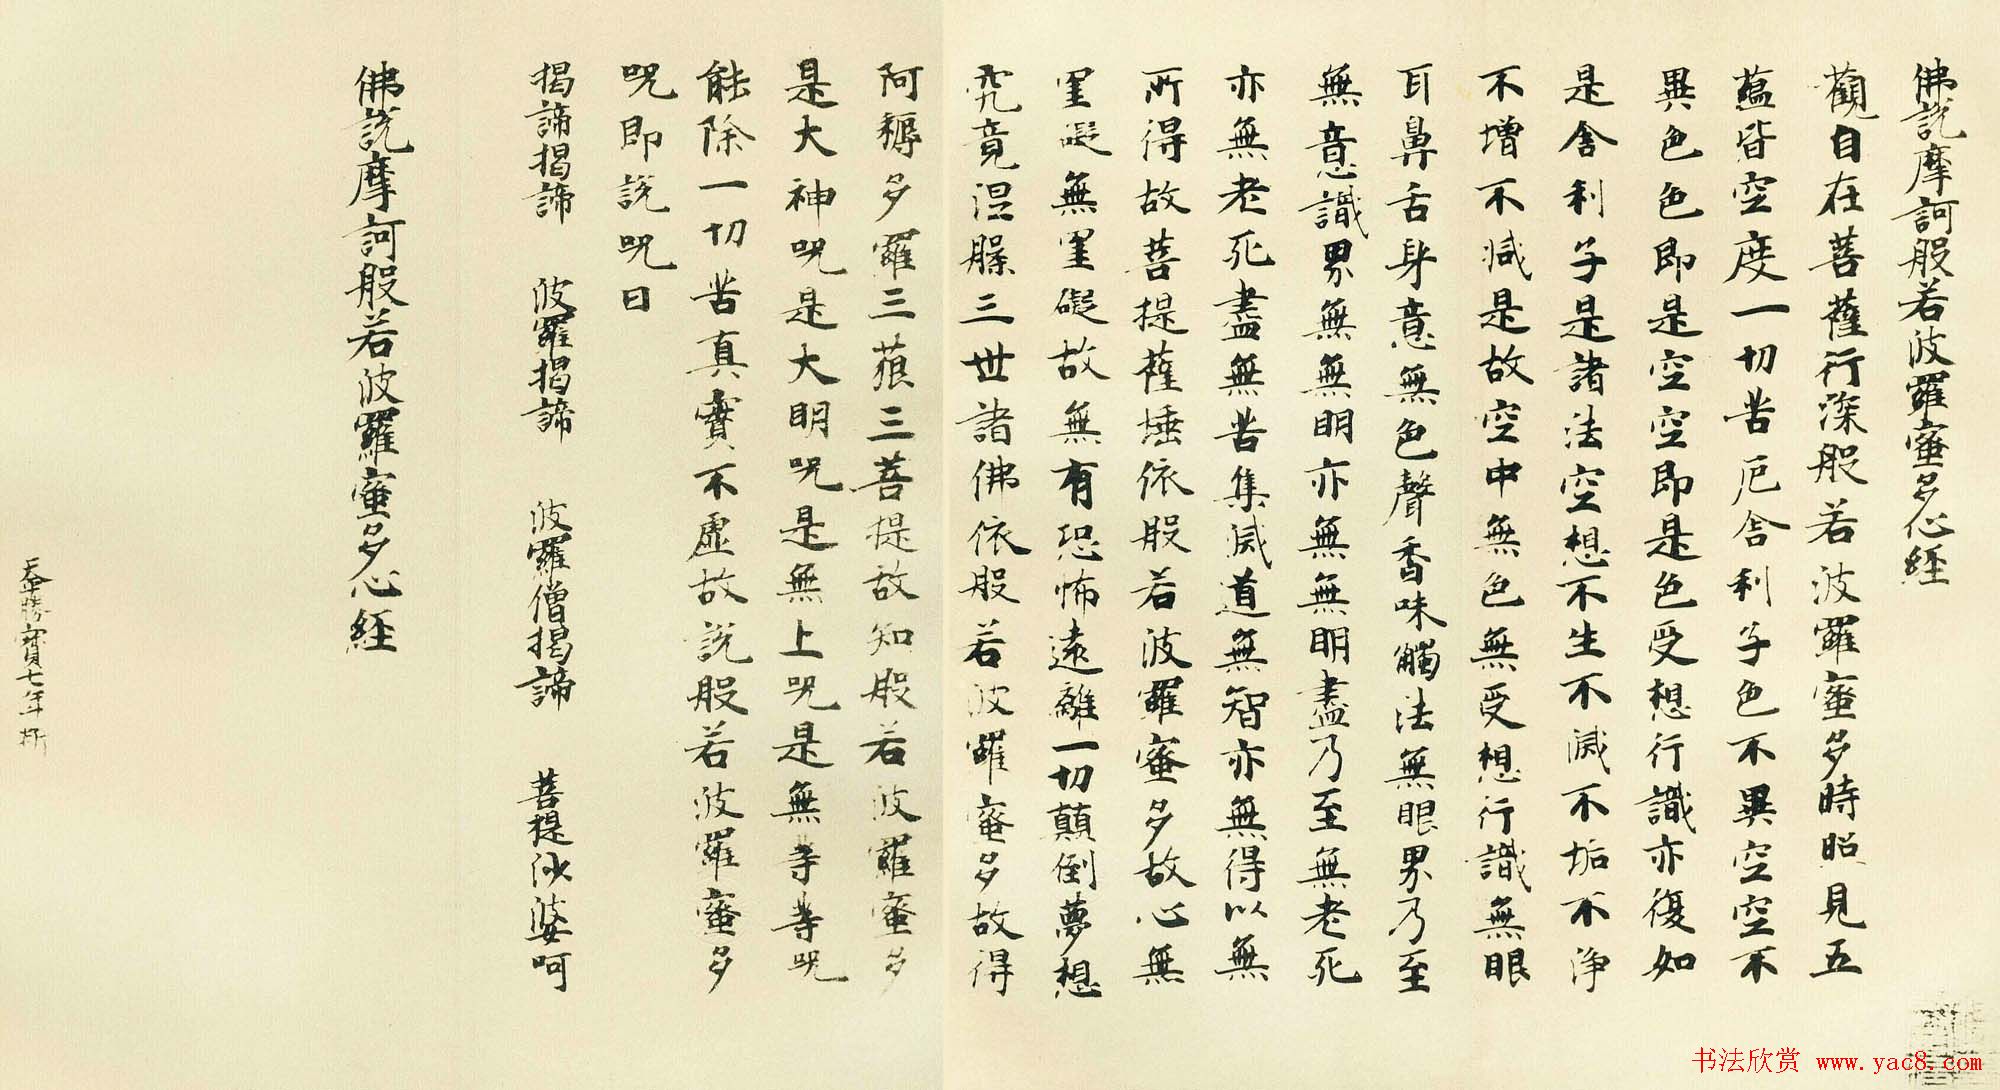 佛說摩訶般若波羅蜜多心經
觀自在菩薩行深般若波羅蜜多時照見五
蘊皆空度一切苦厄舍利子色不異空空不
異色色即是空空即是色受想行識亦復如
是舍利子是諸法空想不生不滅不垢不淨
不增不減是故空中無色無受想行識無眼
耳鼻舌身意無色聲香味觸法無眼界乃至
無意識界無無明亦無無明盡乃至無老死
亦無老死盡無苦集滅道無智亦無得以無
所得故菩提薩埵依般若波羅蜜多故心無
罣礙無罣礙故無有恐怖遠離一切顛倒夢想
究竟涅槃三世諸佛依般若波羅蜜多故得
阿耨多羅三藐三菩提故知般若波羅蜜多
是大神呪是大明呪是無上呪是無等等呪
能除一切苦真實不虛故說般若波羅蜜多
呪即說呪曰
揭諦揭諦 波羅揭諦 波羅僧揭諦 菩提沙婆呵
佛說摩訶般若波羅蜜多心經
天平勝寶七年
书法欣赏 www.yac8.com